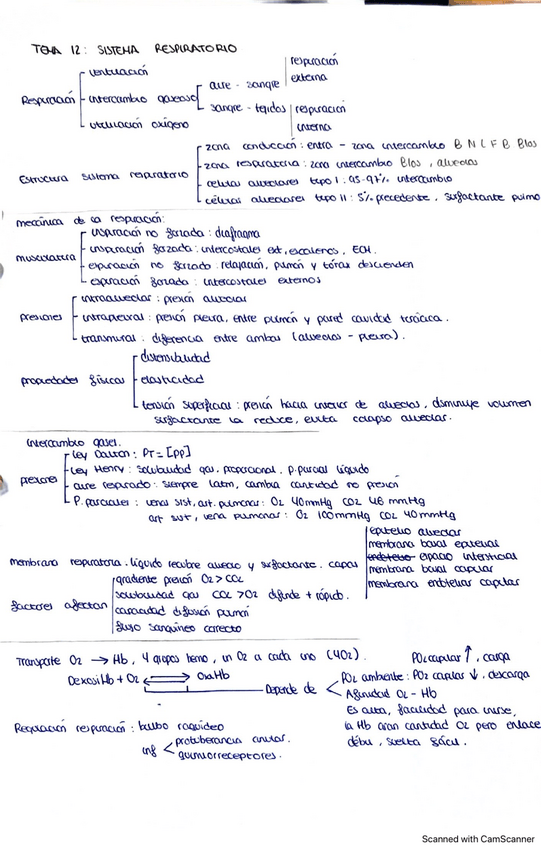 TEMA 12: SISTEMA RESPIRATORIO
Respiración
ventilación
intercambio gaseoso
aire - sangre
respiración
externa
sangre - tejidos
respiración
interna
utilización oxígeno
Estructura sistema respiratorio
zona conducción: entra - zona intercambio B N L F B Blos
zona respiratoria: zona intercambio Blos, alveolos
células alveolares tipo I: 95-97% intercambio
células alveolares tipo II: 5% precedente, surfactante pulmo
mecánica de la respiración:
musculatura
inspiración no forzada: diafragma
inspiración forzada: intercostales ext, escalenos, ECM.
espiración no forzada: relajación, pulmón y tórax descienden
espiración forzada: intercostales externos
presiones
intraalveolar: presión alveolar
intrapleural: presión pleura, entre pulmón y pared cavidad torácica.
transmural: diferencia entre ambas (alveolos - pleura).
propiedades físicas
distensibilidad
elasticidad
tensión superficial: presión hacia interior de alveolos, disminuye volumen
surfactante la reduce, evita colapso alveolar.
Intercambio gases.
presiones
Ley Dalton: PT = [PP]
Ley Henry: solubilidad gas. proporcional, p. parcial líquido
aire respirado: siempre 1atm, cambia cantidad no presión
P. parciales: venas sist, art. pulmonar: O2 40mmHg CO2 46 mmHg
art sist, vena pulmonar: O2 100mmHg CO2 40mmHg
membrana respiratoria. líquido recubre alveolo y surfactante. capas
epitelio alveolar
membrana basal epitelial
espacio intersticial
membrana basal capilar
membrana endotelial capilar
factores afectan
gradiente presión O2 > CO2
solubilidad gas CO2 > O2 difunde + rápido.
capacidad difusión pulmón
flujo sanguíneo correcto
Transporte O2 → Hb, 4 grupos hemo, un O2 a cada uno (4O2).
Desoxi Hb + O2 ⇌ Oxi Hb
Depende de
PO2 capilar ↑, carga
PO2 ambiente: PO2 capilar ↓, descarga
Afinidad O2 - Hb
Es alta, facilidad para unirse,
la Hb gran cantidad O2 pero enlace
débil, suelta fácil.
Regulación respiración: bulbo raquídeo
inf
protuberancia anular.
quimiorreceptores.
Scanned with CamScanner